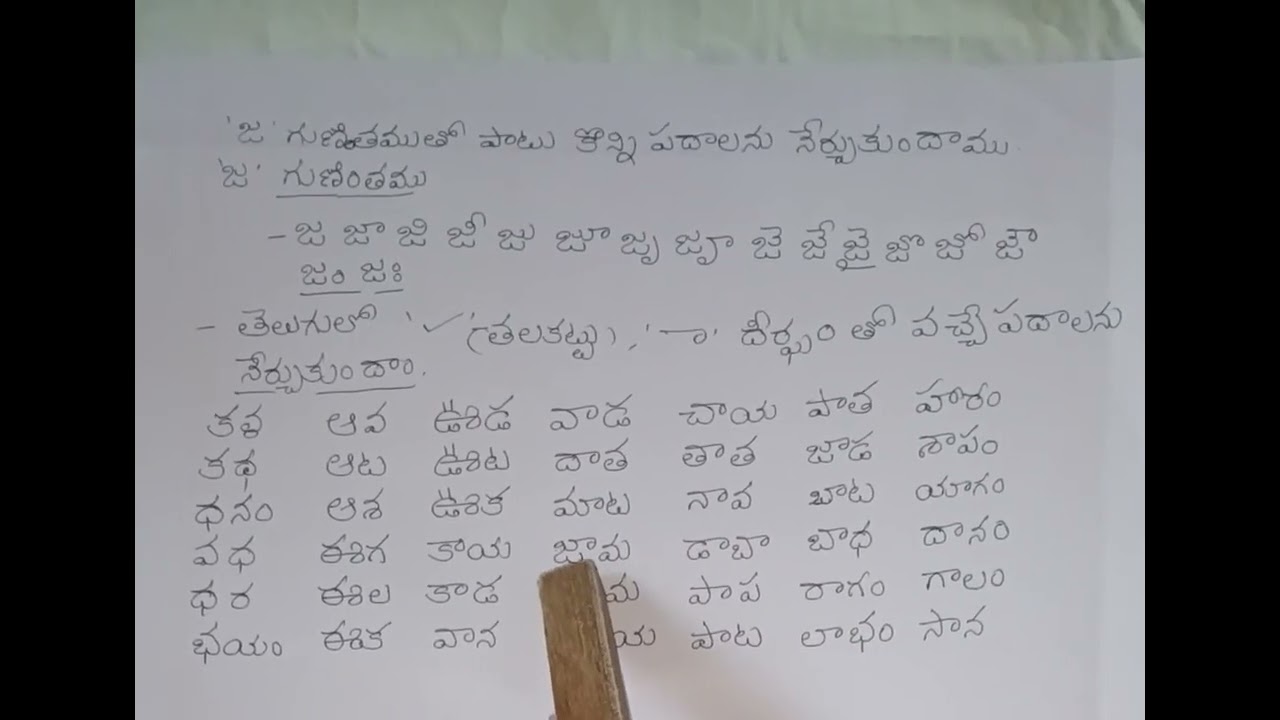 'జ' గుణింతముతో పాటు కొన్ని పదాలను నేర్చుకుందాము.
'జ' గుణింతము
- జ జా జి జీ జు జూ జృ జౄ జె జే జై జొ జో జౌ
జం జః
- తెలుగులో '✓' (తలకట్టు), 'ా' దీర్ఘం తో వచ్చే పదాలను
నేర్చుకుందాం.
కళ ఆవ ఊడ వాడ చాయ పాత హారం
కథ ఆట ఊట దాత తాత జాడ శాపం
ధనం ఆశ ఊక మాట నావ బాట యాగం
వధ ఈగ కాయ జామ డాబా బాధ దానం
ధర ఈల కాడ పాప రాగం గాలం
భయం ఈక వాన పాట లాభం సాన